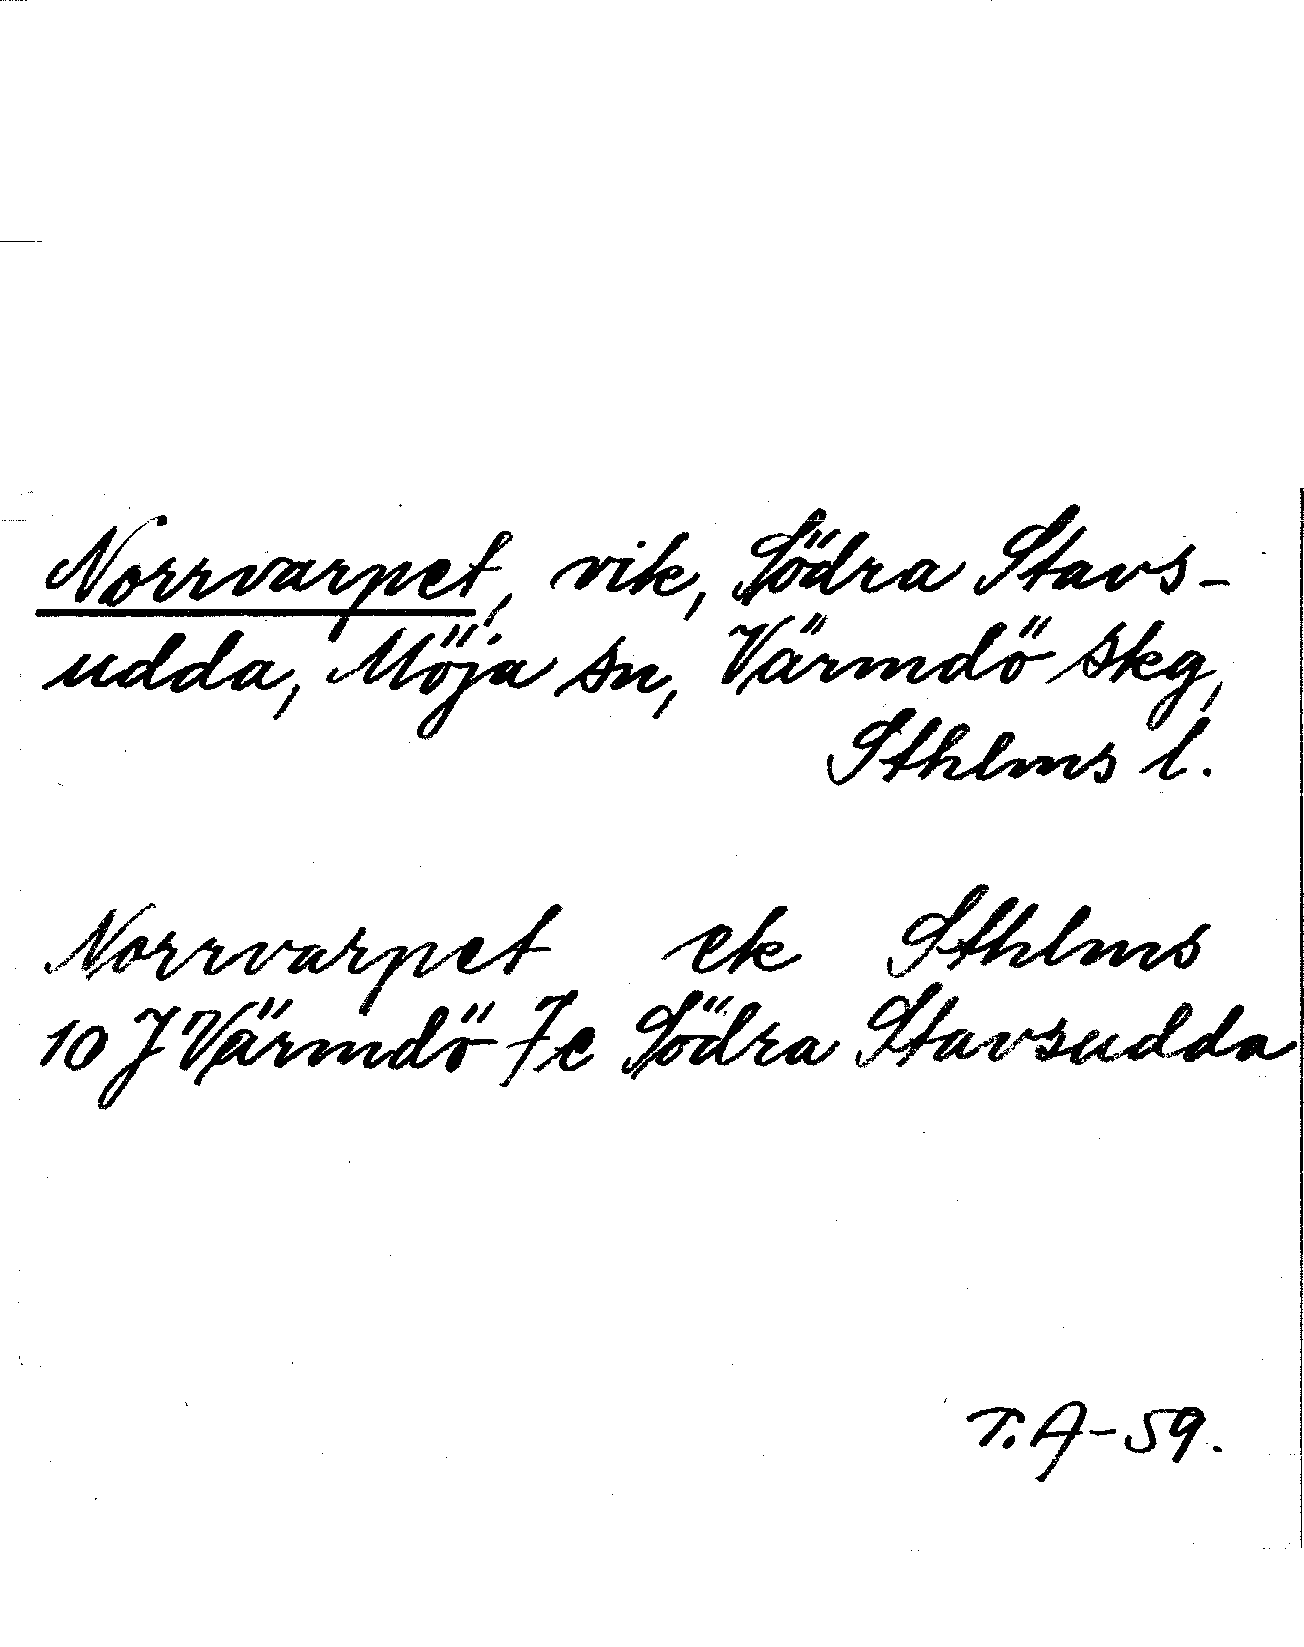 Norrvarpet, vik, Södra Stavs-
udda, Möja sn, Värmdö skg,
Sthlms l.
Norrvarpet ek Sthlms
10 J Värmdö 7e Södra Stavsudda
T. A-59.